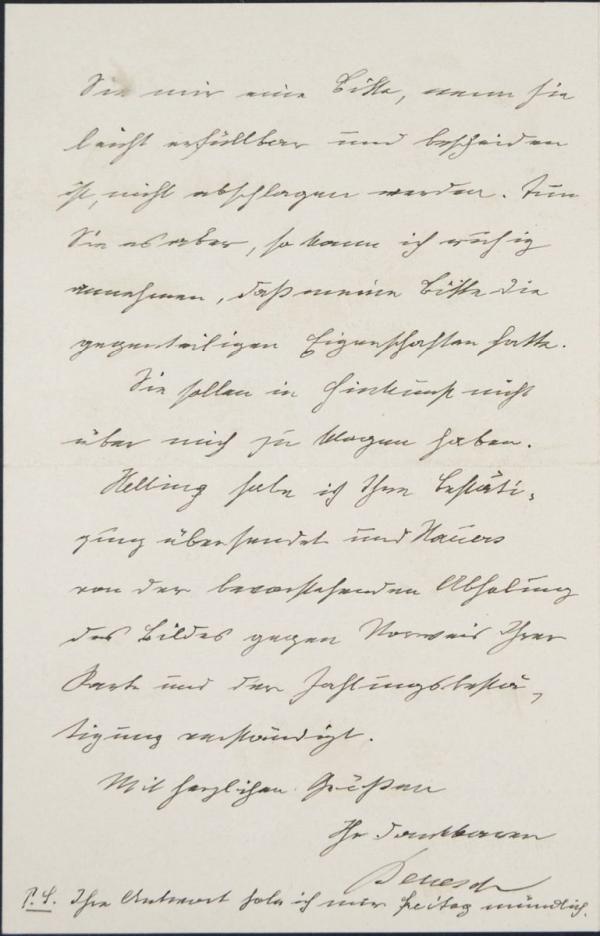 Sie mir eine Bitte, wenn sie
leicht erfüllbar und bescheiden
ist, nicht abschlagen werden. Tun
Sie es aber, so kann ich ruhig
annehmen, daß meine Bitte die
gegenteiligen Eigenschaften hatte.
Sie sollen in Hinkunft nicht
über mich zu klagen haben.
Helling habe ich Ihre Bestäti-
gung übersendet und Hauers
von der bevorstehenden Abholung
des Bildes gegen Vorweis Ihrer
Karte und der Zahlungsbestä-
tigung verständigt.
Mit herzlichen Grüßen
Ihr dankbarer
Benesch
P.S. Ihre Antwort hole ich mir Freitag mündlich.